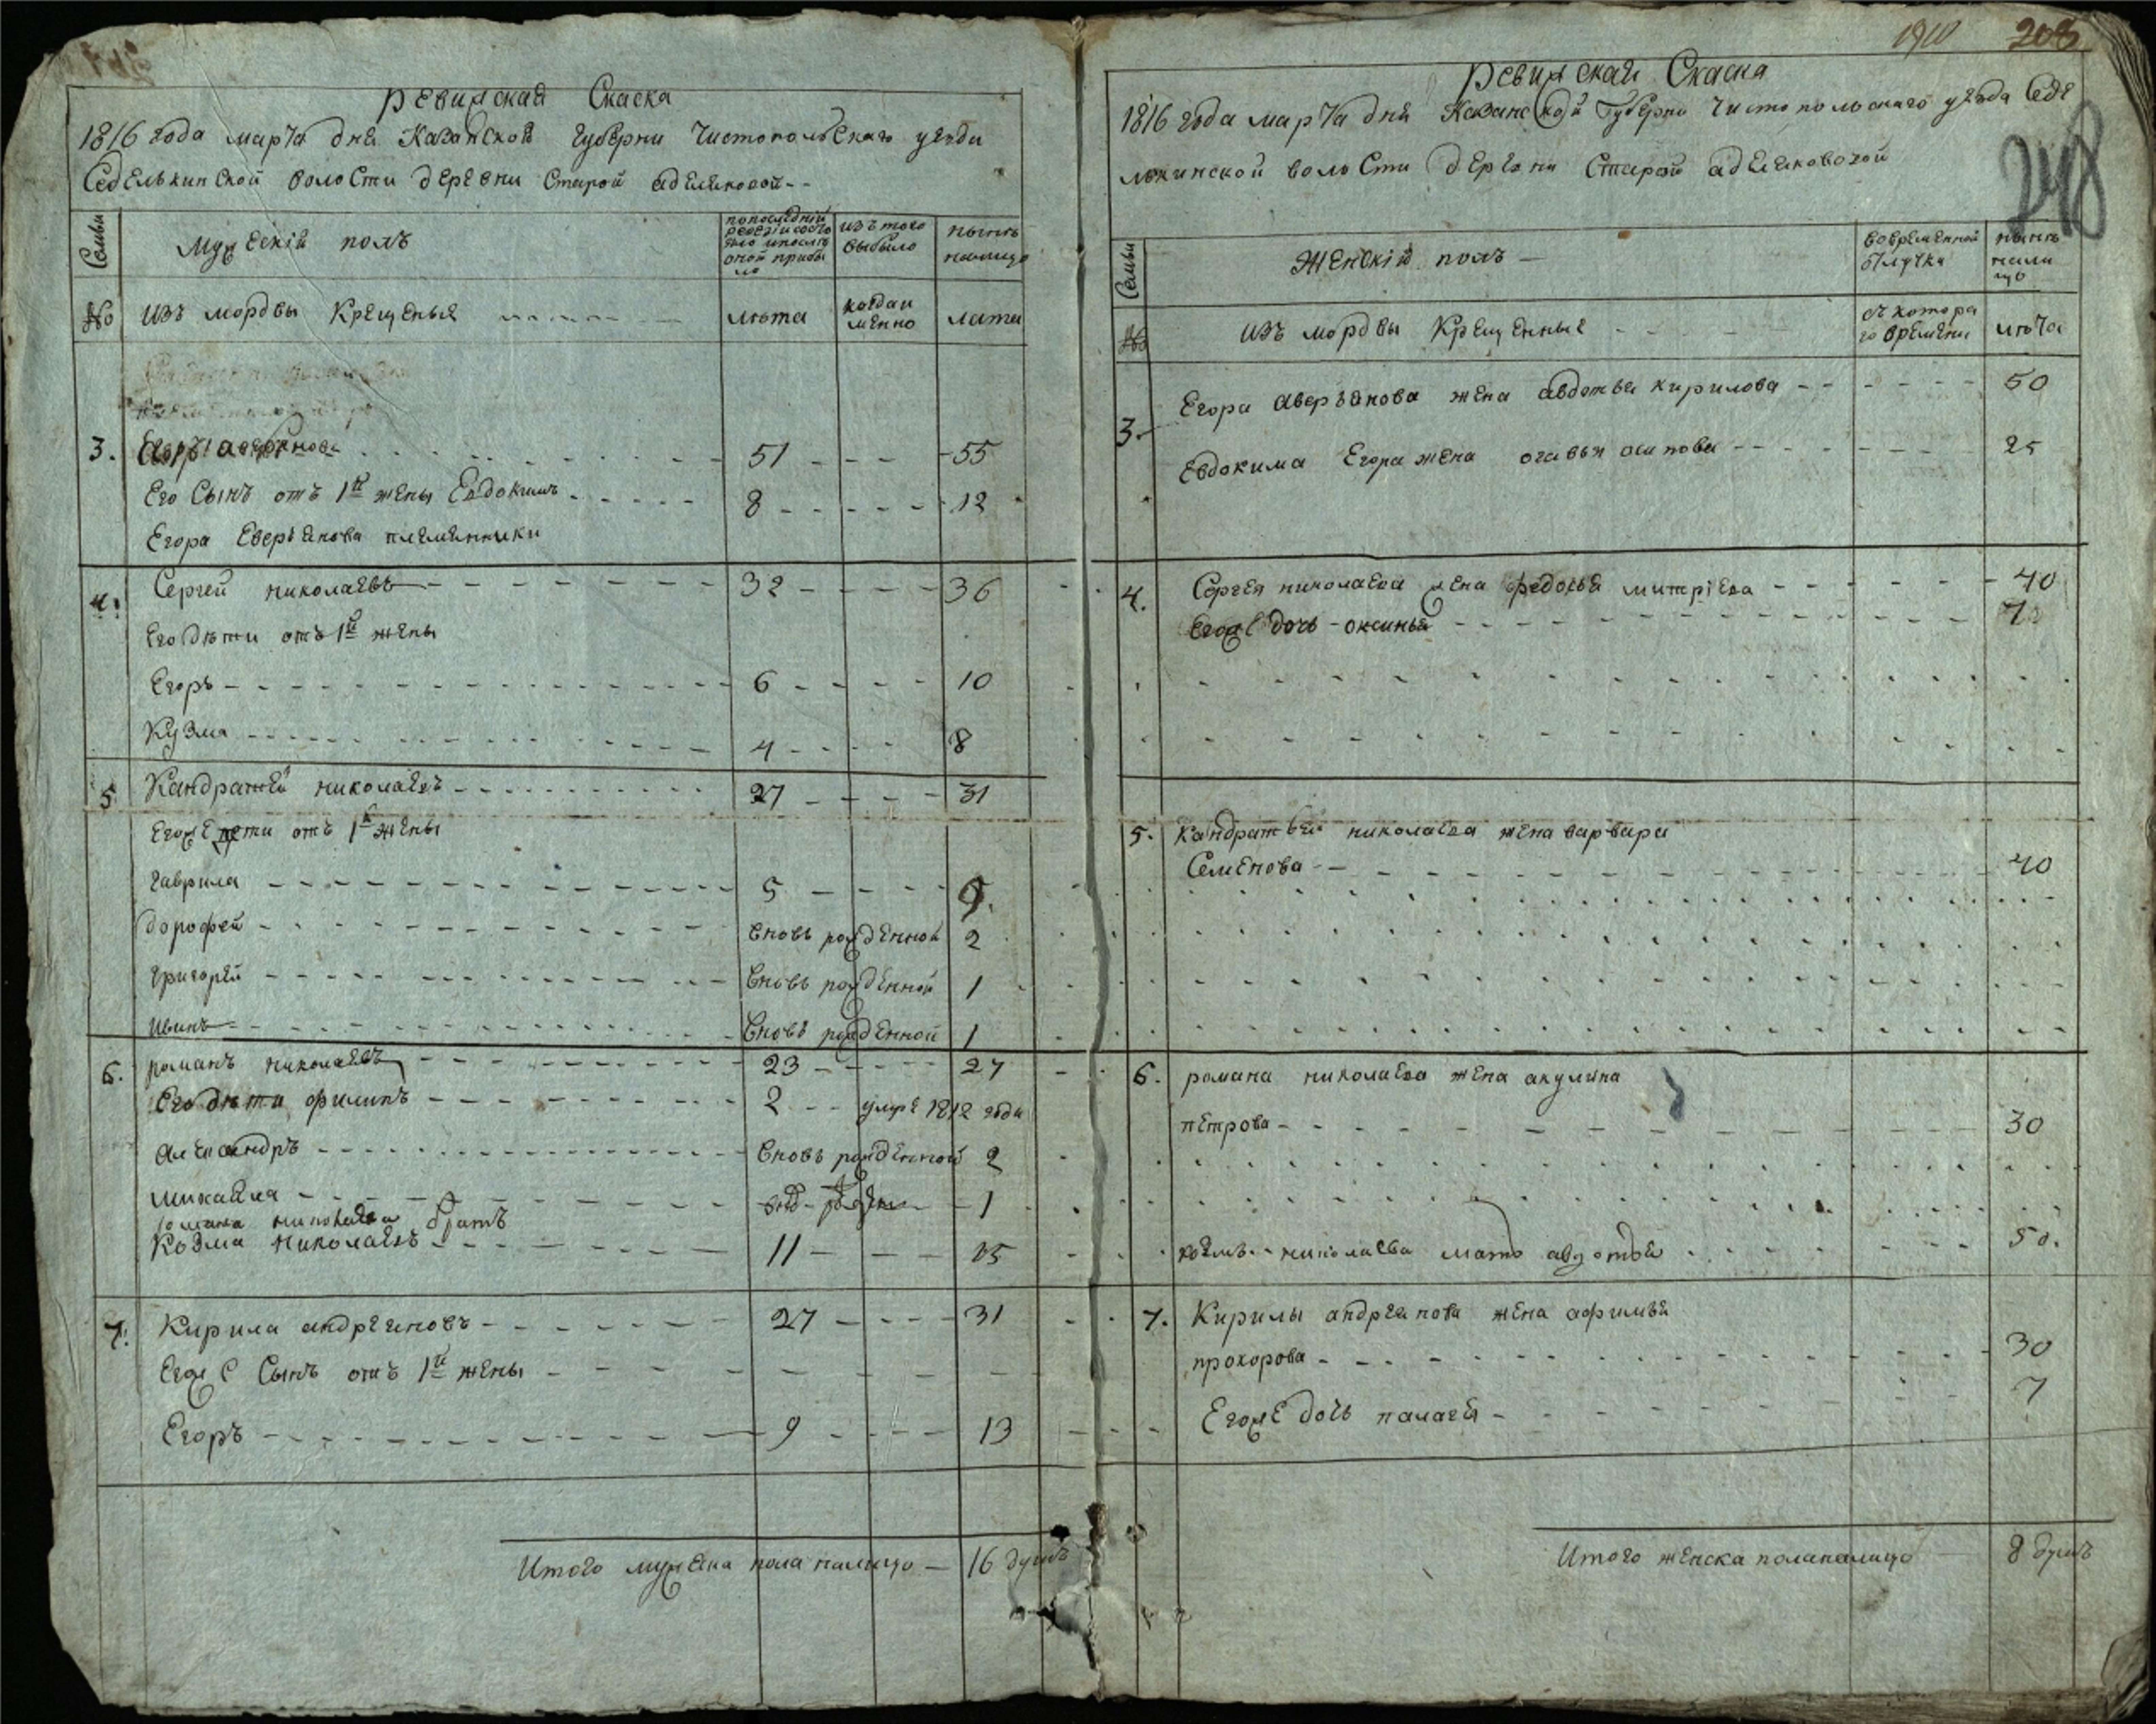 Ревиская Скаска
1816 года марта дня Казанской губерни Чистопольскаго уезда
Седелькинской волости деревни Старой аделяковой --
Семьи
Мужескій полъ
по последній ревезіи состояло и после оной прибыло
изъ того выбыло
нынъ налицо
№
изъ мордвы Крещеные
лѣта
когда имянно
лата
3. Егоръ аверянова 51 55
Его Сынъ отъ 1й жены Евдокимъ 8 12
Егора Еверьянова племянники
4. Сергей николаевъ 32 36
Его дѣти отъ 1й жены
Егоръ 6 10
Кузма 4 8
5 Кандратей николаевъ 27 31
Егоже дети отъ 1й жены
гаврила 5 9.
дорофей вновь рожденной 2
григорей вновь рожденной 1
Иванъ вновь рожденной 1
6. романъ николаевъ 23 27
Его дѣти филипъ 2 умре 1812 года
александръ вновь рожденной 2
михайла 1
романа николаева братъ
Козма николаевъ 11 15
7. Кирила андреяновъ 27 31
Егоже Сынъ отъ 1й жены
Егоръ 9 13
Итого мужска пола налицо — 16 душъ
1910 208
248
Ревиская Скаска
1816 года марта дня Казанской Губерни Чистопольскаго уезда Седе
лькинской волости деревни Старой аделяковой
Семьи
Женскій полъ —
во временной отлучке
нынъ налицо
№
изъ мордвы Крещенные
съ котораго времени
лѣта
3. Егора аверьянова жена авдотья кирилова 50
Евдокима Егора жена огавья осипова 25
4. Сергея николаева жена федосья митріева 40
Егоже дочь - оксинья
5. Кандратья николаева жена варвара
Семенова 40
6. романа николаева жена акулина
петрова 30
николаева мать авдотья 50.
7. Кирилы андреянова жена афимья
прохорова 30
Егоже дочь палагея 7
Итого женска пола налицо 8 душъ